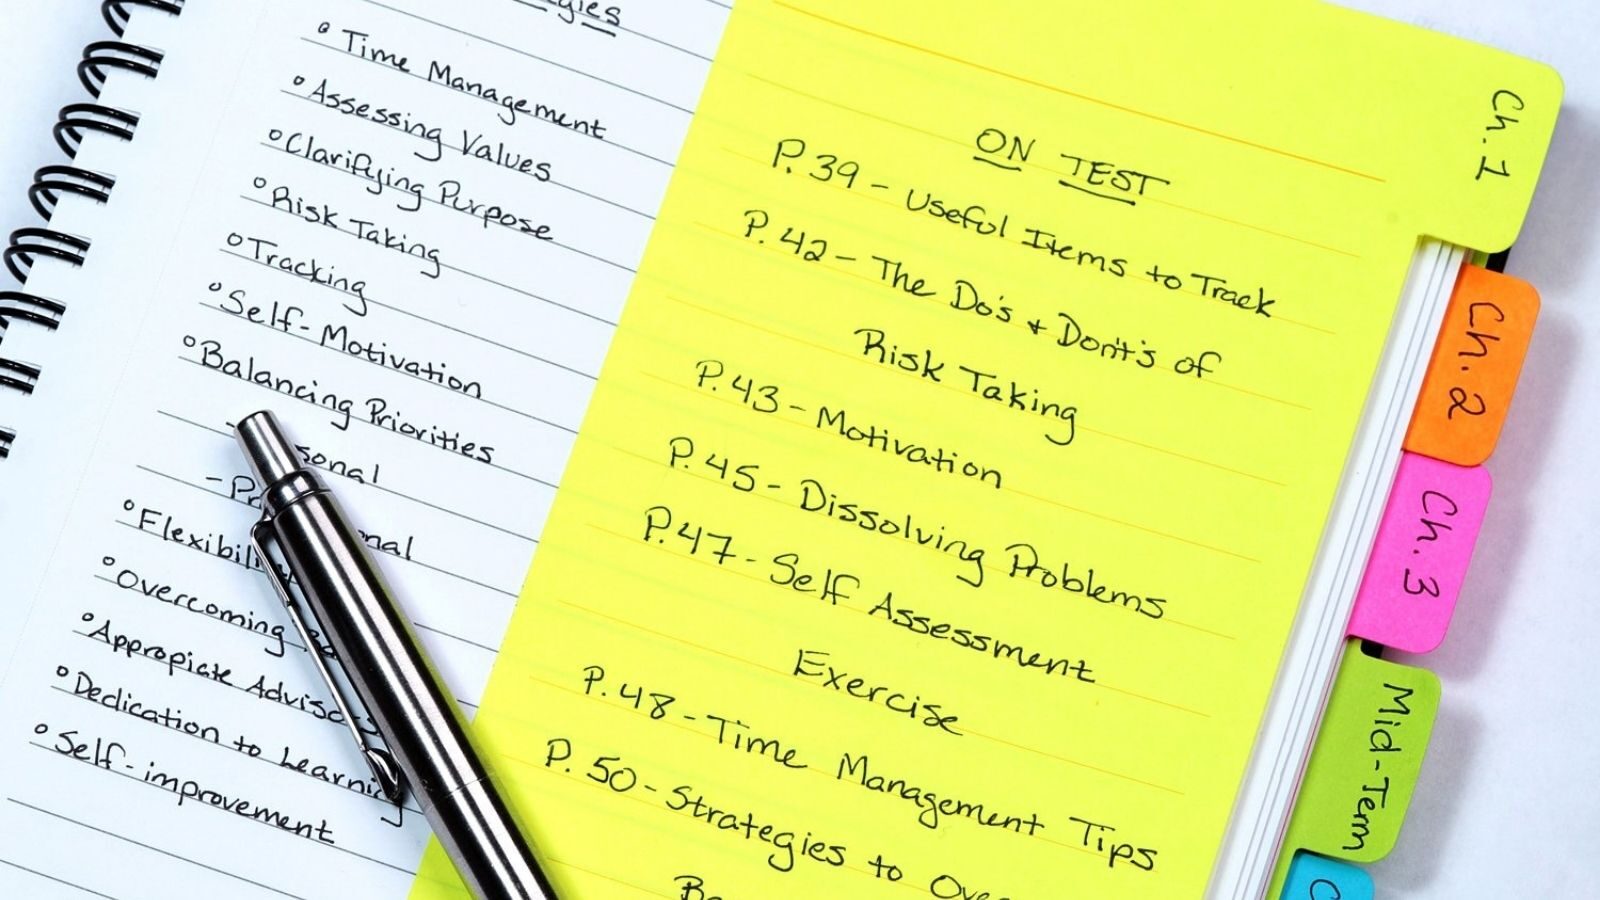 ° Time Management
° Assessing Values
° Clarifying Purpose
° Risk Taking
° Tracking
° Self-Motivation
° Balancing Priorities
° Overcoming
° Appropiate
° Dedication to Learning
° Self-improvement
ON TEST
P. 39 - Useful Items to Track
P. 42 - The Do's + Dont's of
Risk Taking
P. 43 - Motivation
P. 45 - Dissolving Problems
P. 47 - Self Assessment
Exercise
P. 48 - Time Management Tips
P. 50 - Strategies to
Ch. 1
Ch. 2
Ch. 3
Mid-Term